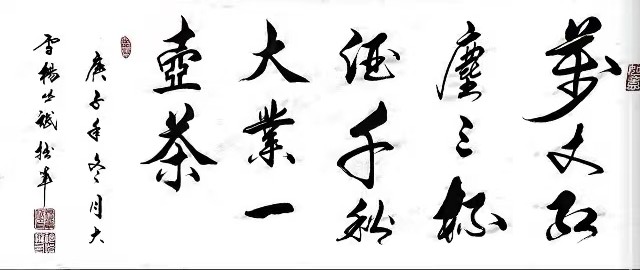 萬丈紅
塵三杯
酒千秋
大業一
壺茶
庚子年冬月大
雪楊